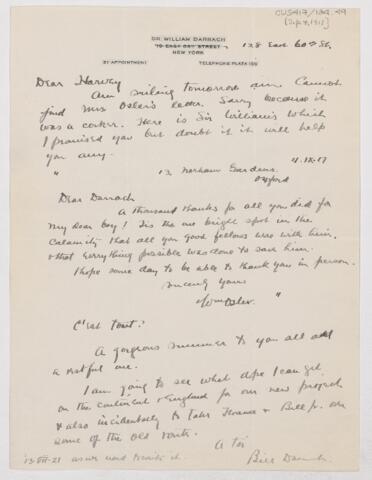 CUS417/124.49
[Sept 4, 1918]
DR. WILLIAM DARRACH
10 EAST 60th STREET
NEW YORK
128 East 60th St.
BY APPOINTMENT
TELEPHONE PLAZA
Dear Harvey
Am sailing tomorrow am. Cannot
find Mrs Osler's letter. Sorry because it
was a corker. Here is Sir William's which
I promised you but doubt if it will help
you any.
" 13 Norham Gardens.
Oxford
Dear Darrach
A thousand thanks for all you did for
my dear boy! Tis the one bright spot in the
calamity that all you good fellows were with him,
& that everything possible was done to save him.
I hope some day to be able to thank you in person.
Sincerely yours
Wm Osler.
C'est tout!
A gorgeous summer to you all and
a restful one.
I am going to see what dope I can get
on the continent & England for our new project
& also incidentally to take Florence & Bill Jr. over
some of the old
A toi
Bill Darrach